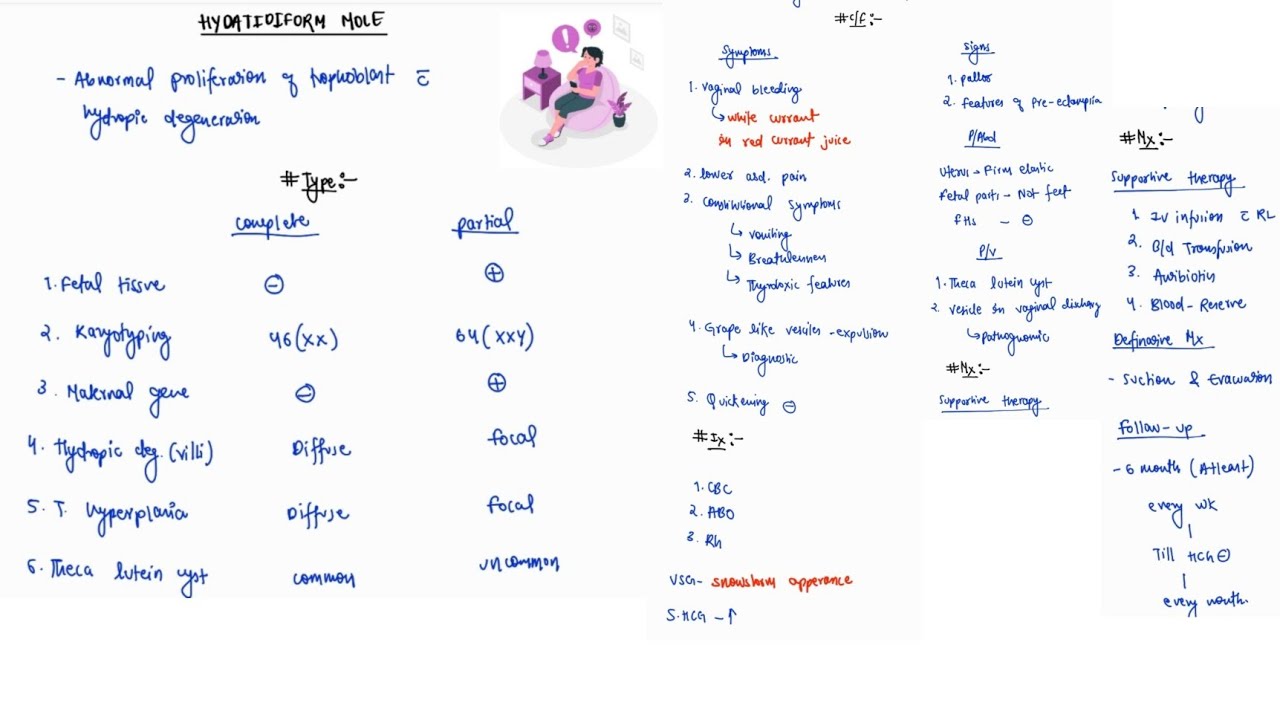 HYDATIDIFORM MOLE
- Abnormal proliferation of trophoblast c̄
hydropic degeneration
# Type:-
complete partial
1. Fetal tissue ⊖ ⊕
2. Karyotyping 46(XX) 64(XXY)
3. Maternal gene ⊖ ⊕
4. Hydropic deg. (villi) Diffuse focal
5. T. hyperplasia Diffuse focal
6. Theca lutein cyst common uncommon
# C/f:-
Symptoms
1. Vaginal bleeding
↳ white currant
in red currant juice
2. lower abd. pain
3. Constitutional symptoms
↳ Vomiting
↳ Breathlessness
↳ Thyrotoxic features
4. Grape like vesicles - expulsion
↳ Diagnostic
5. Quickening ⊖
# Ix:-
1. CBC
2. ABO
3. Rh
USG - snowstorm apperance
S. HCG - ↑
Signs
1. pallor
2. features of Pre-eclampsia
P/Abd
Uterus - Firm elastic
Fetal parts - Not feel
FHS - ⊖
P/V
1. Theca lutein cyst
2. Vesicle in vaginal discharg
↳ Pathognomic
# Mx:-
Supportive therapy
# Mx:-
Supportive therapy
1. IV infusion c̄ RL
2. B/d Transfusion
3. Antibiotics
4. Blood - Reserve
Definative Mx
- Suction & Evacuation
Follow-up
- 6 month (Atleast)
every wk
|
Till HCG ⊖
|
every month.